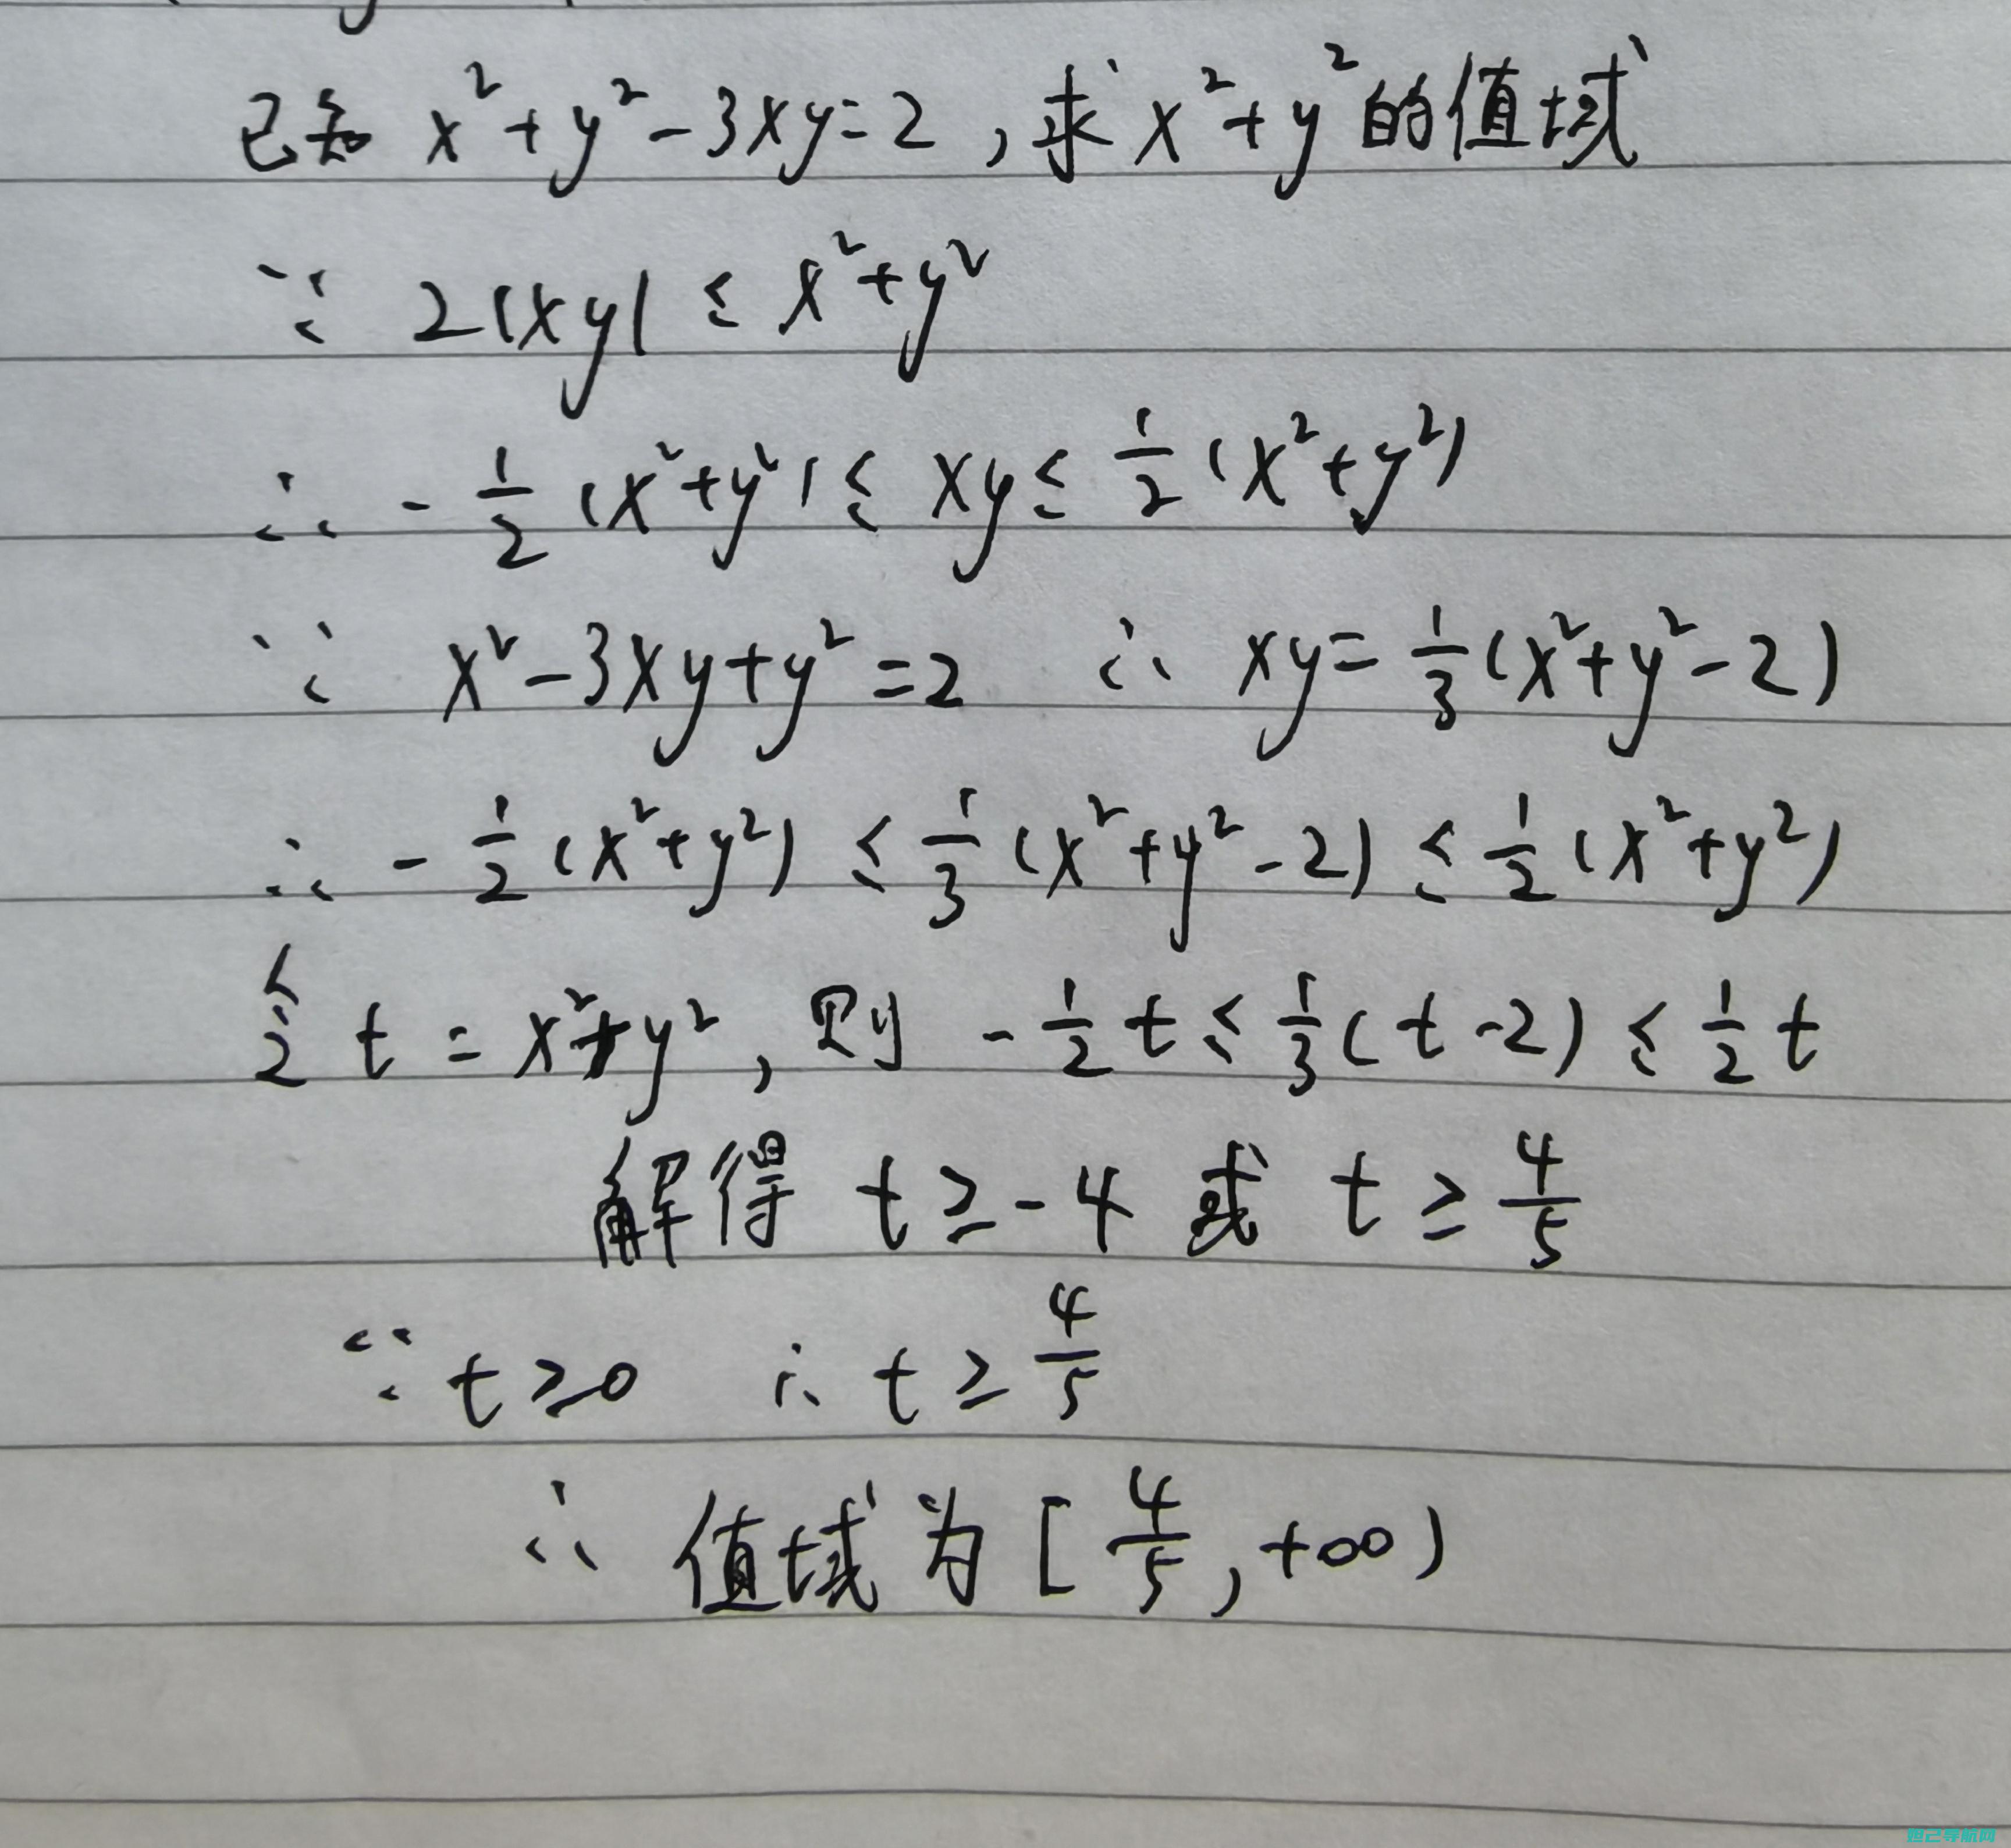 已知 x²+y²-3xy=2,求 x²+y²的值域
∵ 2|xy| ≤ x²+y²
∴ -1/2(x²+y²)≤ xy≤ 1/2(x²+y²)
∵ x²-3xy+y²=2 ∴ xy=1/3(x²+y²-2)
∴ -1/2(x²+y²) ≤ 1/3(x²+y²-2) ≤ 1/2(x²+y²)
令 t = x²+y², 则 -1/2t ≤ 1/3(t-2) ≤ 1/2t
解得 t ≥ -4 或 t ≥ 4/5
∵ t ≥0 ∴ t ≥ 4/5
∴ 值域为 [4/5, +∞)
妲己导航网